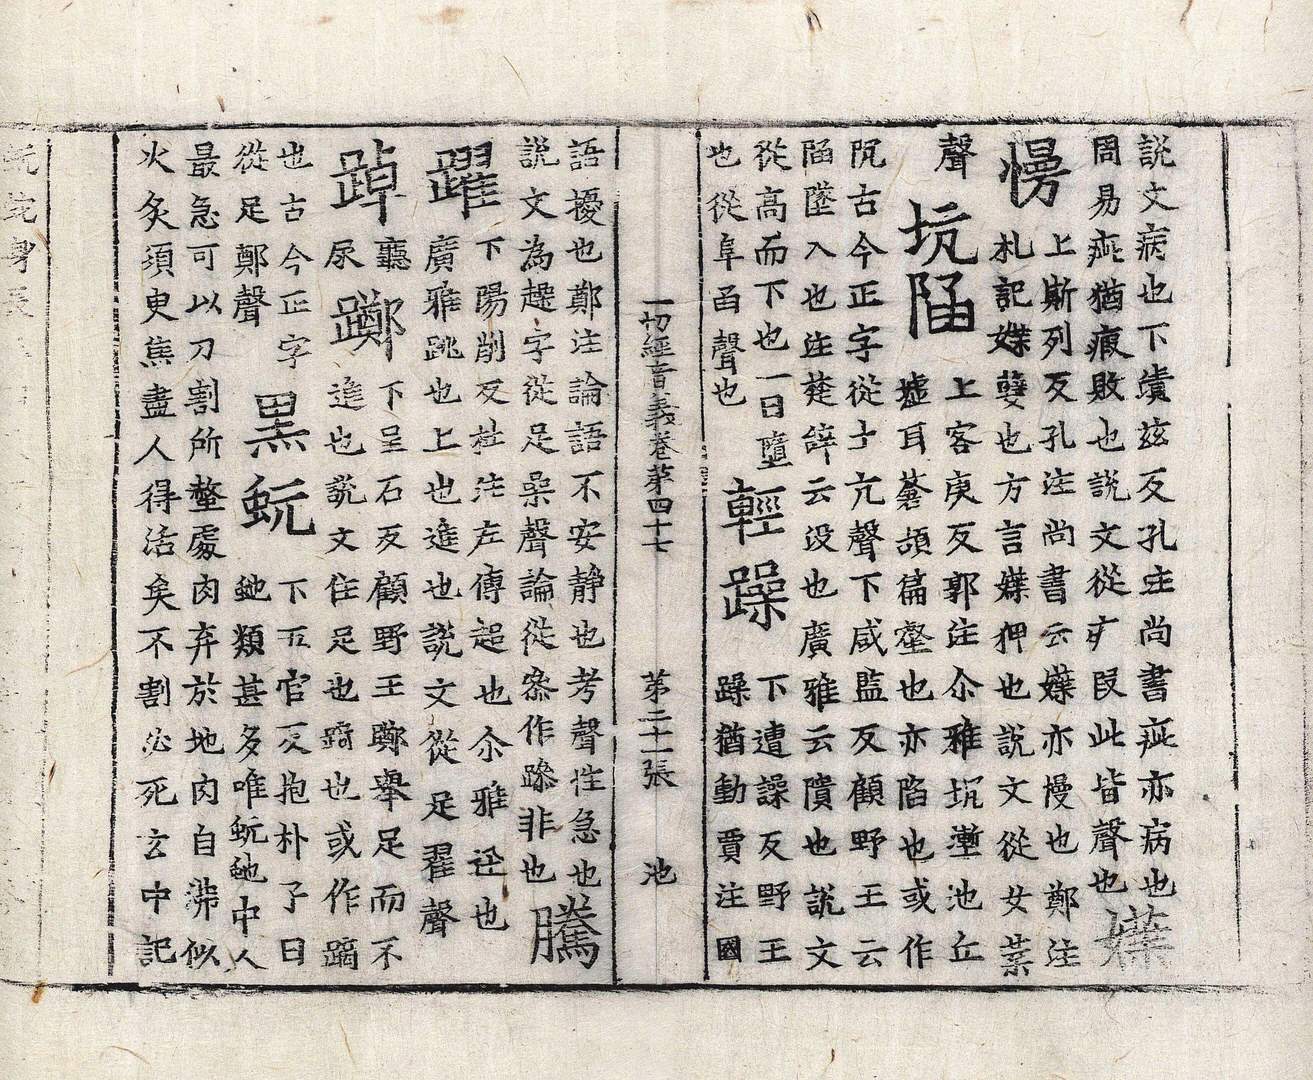 説文病也下漬兹反孔注尚書疵亦病也
周易疵猶瑕敗也説文從疒㫖此皆聲也媟
上斯列反孔注尚書云媟亦慢也鄭注
慢札記媟㜸也方言媟狎也説文從女葉
聲坑陷上客庚反郭注尒雅坑壍池丘
墟耳蒼頡篇壑也亦陷也或作
阬古今正字從土亢聲下咸監反顧野王云
陷墜入也注楚辝云没也廣雅云隤也説文
從高而下也一曰墮輕躁下遭譟反野王
也從阜臽聲也躁猶動賈注國
一切經音義卷第四十七 第二十一張 池
語擾也鄭注論語不安静也考聲性急也騰
説文為趮字從足喿聲論從叅作跺非也
躍下陽削反杜注左傳超也尒雅迳也
廣雅跳也上也進也説文從足翟聲
踔躑下呈石反顧野王躑舉足而不
進也説文住足也蹢也或作蹢
也古今正字黑蚖下五官反抱朴子曰
從足鄭聲虵類甚多唯蚖虵中人
最急可以刀割所螫處肉弃於地肉自沸似
火炙須臾焦盡人得活矣不割必死玄中記